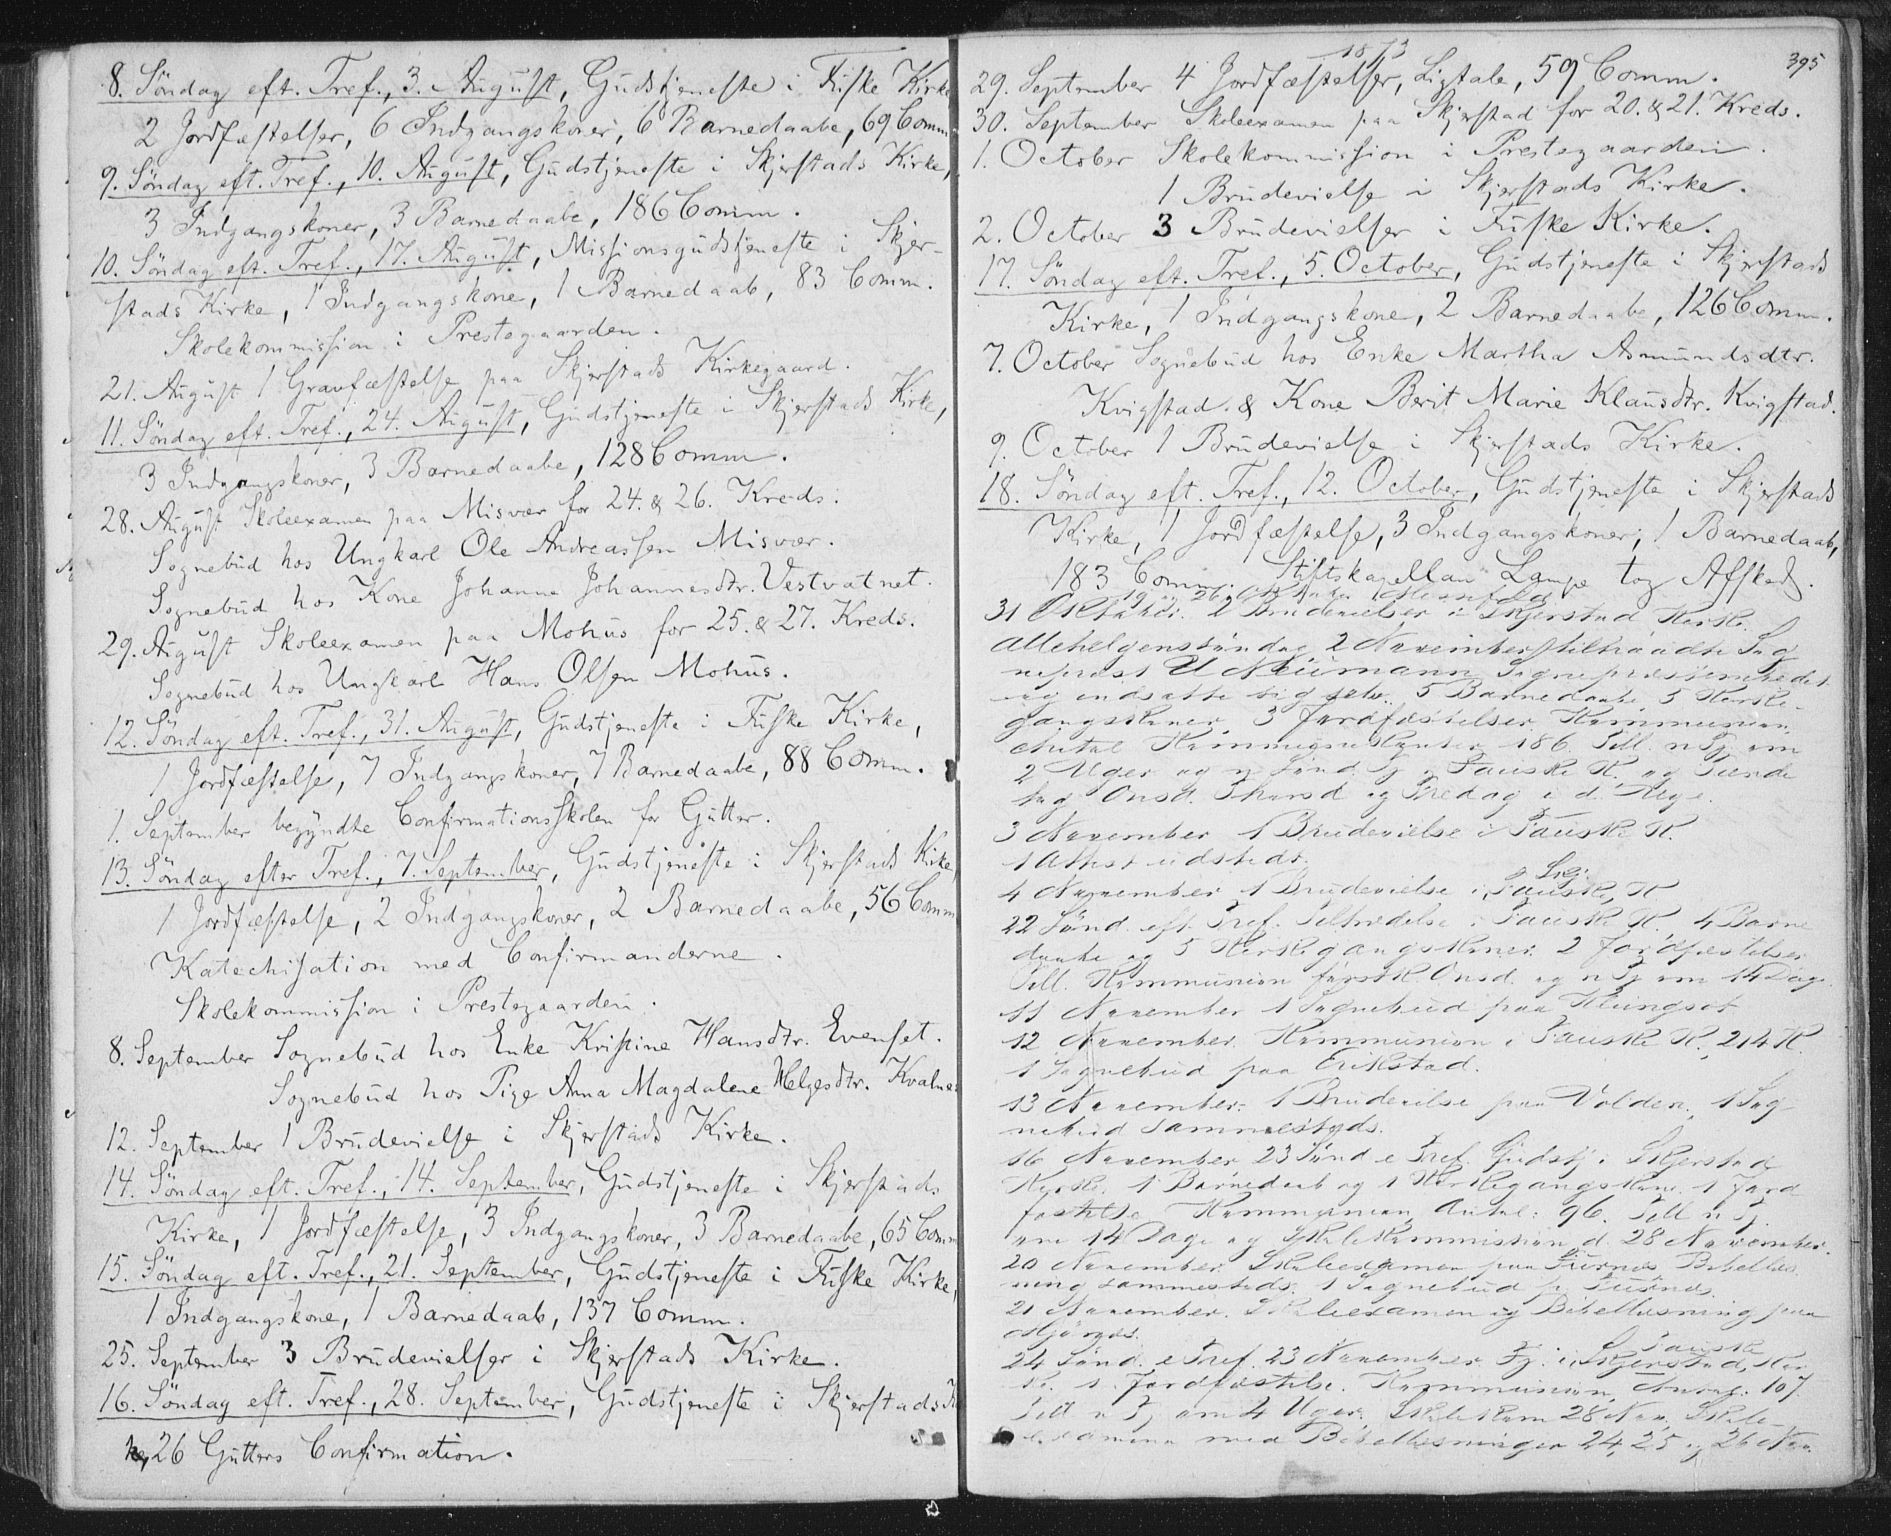 8. Söndag eft. Tref., 3. August, Gudstjeneste i Fuske Kirke
2 Jordfæstelser, 6 Indgangskoner, 6 Barnedaabe, 69 Comm
9. Söndag eft. Tref., 10. August, Gudstjeneste i Skjerstads Kirke,
3 Indgangskoner, 3 Barnedaabe, 186 Comm.
10. Söndag eft. Tref., 17. August, Missionsgudstjeneste i Skjer-
stads Kirke, 1 Indgangskone, 1 Barnedaab, 83 Comm.
Skolekommission i Prestegaarden.
21. August 1 Gravfæstelse paa Skjerstads Kirkegaard.
11. Söndag eft. Tref., 24. August, Gudstjeneste i Skjerstads Kirke,
3 Indgangskoner, 3 Barnedaabe, 128 Comm.
28. August Skoleexamen paa Misvær for 24. & 26. Kreds.
Sognebud hos Ungkarl Ole Andreassen Misvær.
Sognebud hos Kone Johanna Johannesdtr. Vestvatnet.
29. August Skoleexamen paa Mohus for 25. & 27. Kreds.
Sognebud hos Ungkarl Hans Olsen Mohus.
12. Söndag eft. Tref., 31. August, Gudstjeneste i Fuske Kirke,
1 Jordfæstelse, 7 Indgangskoner, 7 Barnedaabe, 88 Comm.
1. September begyndte Confirmationsskolen for Gutter.
13. Söndag efter Tref., 7. September, Gudstjeneste i Skjerstads Kirke,
1 Jordfæstelse, 2 Indgangskoner, 2 Barnedaabe, 56 Comm
Katechisation med Confirmanderne.
Skolekommission i Prestegaarden.
8. September Sognebud hos Enke Kristine Hansdtr. Evenset.
Sognebud hos Pige Anna Magdalene Helgesdtr. Kvalnes
12. September 1 Brudevielse i Skjerstads Kirke.
14. Söndag eft. Tref., 14. September, Gudstjeneste i Skjerstads
Kirke, 1 Jordfæstelse, 3 Indgangskoner, 3 Barnedaabe, 65 Comm
15. Söndag eft. Tref., 21. September, Gudstjeneste i Fuske Kirke,
1 Indgangskone, 1 Barnedaab, 137 Comm.
25. September 3 Brudevielser i Skjerstads Kirke.
16. Söndag eft. Tref., 28. September, Gudstjeneste i Skjerstads K
ke, 26 Gutters Confirmation.
1873
395
29. September 4 Jordfæstelser, Ligtale, 59 Comm.
30. September Skoleexamen paa Skjerstad for 20. & 21. Kreds.
1. October Skolekommission i Prestegaarden.
1 Brudevielse i Skjerstads Kirke.
2. October 3 Brudevielser i Fuske Kirke.
17. Söndag eft. Tref., 5. October, Gudstjeneste i Skjerstads
Kirke, 1 Indgangskone, 2 Barnedaabe, 126 Comm.
7. October Sognebud hos Enke Martha Asmundsdtr.
Kvigstad & Kone Berit Marie Klausdtr. Kvigstad.
9. October 1 Brudevielse i Skjerstads Kirke.
18. Söndag eft. Tref., 12. October, Gudstjeneste i Skjerstads
Kirke, 1 Jordfæstelse, 3 Indgangskoner, 1 Barnedaab,
183 Comm. Stiftskapellan Lampe tog Afsked.
19 26 Oktober Messefald
31 Oktober. 2 Brudevielser i Skjerstad Kirke.
Allehelgenssöndag 2 November tiltraadte Sog
neprest U Neumann Sognepræstembedet
og indsatte sig selv. 5 Barnedaabe, 5 Kirke-
gangskoner, 3 Jordfæstelser. Kommunion.
Antal Kommunikanter 186. Till. n Tj om
2 Uger og n Sönd. Tj i Fauske K. og Tiende
tag Onsd. Thorsd og Fredag i d. Uge.
3 November 1 Brudevielse i Fauske K.
1 Attest udstedt.
4 November 1 Brudevielse i Fauske K
22 Sönd. eft. Tref. Tiltrædelse i Fauske K. 4 Barne
daabe og 5 Kirkegangskoner. 2 Jordfæstelser
Till. Kommunion förstk. Onsd. og n Tj om 14 Dage.
11 November 1 Sognebud paa Klungset
12 November. Kommunion i Fauske K., 214 K.
1 Sognebud paa Erikstad.
13 November. 1 Brudevielse paa Valden, 1 Sog
nebud sammesteds.
16 November 23 Sönd e Tref Gudstj. i Skjerstad
Kirke. 1 Barnedaab og 1 Kirkegangskone. 1 Jord
fæstelse Kommunion Antal: 96. Till n Tj.
om 14 Dage og Skolekommission d. 28 November.
20 November. Skoleexamen paa Furnes Bibellæs
ning sammesteds. 1 Sognebud p Furnes.
21 November. Skoleexamen og Bibellæsning paa
24 Sönd. e Tref. 23 November Tj. i Skjerstad, Kir
Fauske
k. 1 Jordfæstelse. Kommunion, Antal: 107.
Till n Tj om 4 Uger. Skolekom 28 Nov. Skole-
examina med Bibellæsninger 24, 25 og 26 Nov.